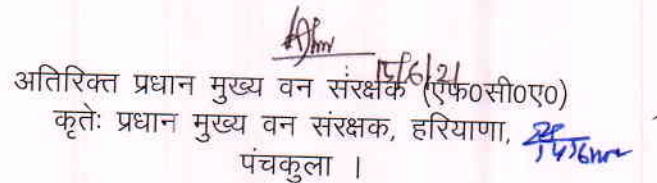 15/6/21
अतिरिक्त प्रधान मुख्य वन संरक्षक (एफ0सी0ए0)
कृतेः प्रधान मुख्य वन संरक्षक, हरियाणा,
पंचकुला ।